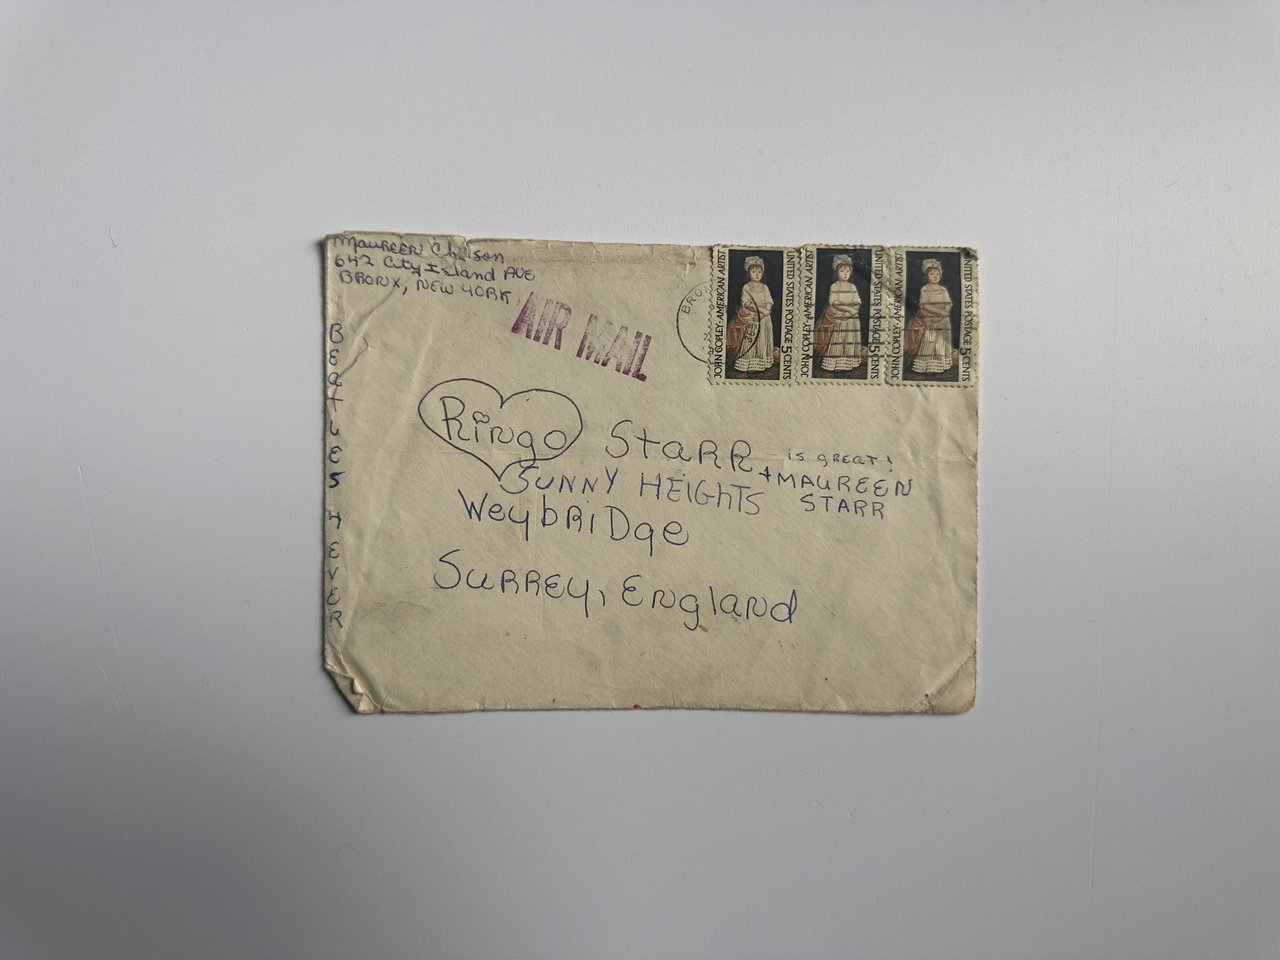 Maureen Chilson
642 City Island Ave
Bronx, New York
AIR MAIL
BRO
JOHN COPLEY · AMERICAN ARTIST
UNITED STATES POSTAGE 5 CENTS
JOHN COPLEY · AMERICAN ARTIST
UNITED STATES POSTAGE 5 CENTS
JOHN COPLEY · AMERICAN ARTIST
UNITED STATES POSTAGE 5 CENTS
BEATLES 4 EVER
Ringo Starr is great!
+ Maureen Starr
Sunny Heights
Weybridge
Surrey, England